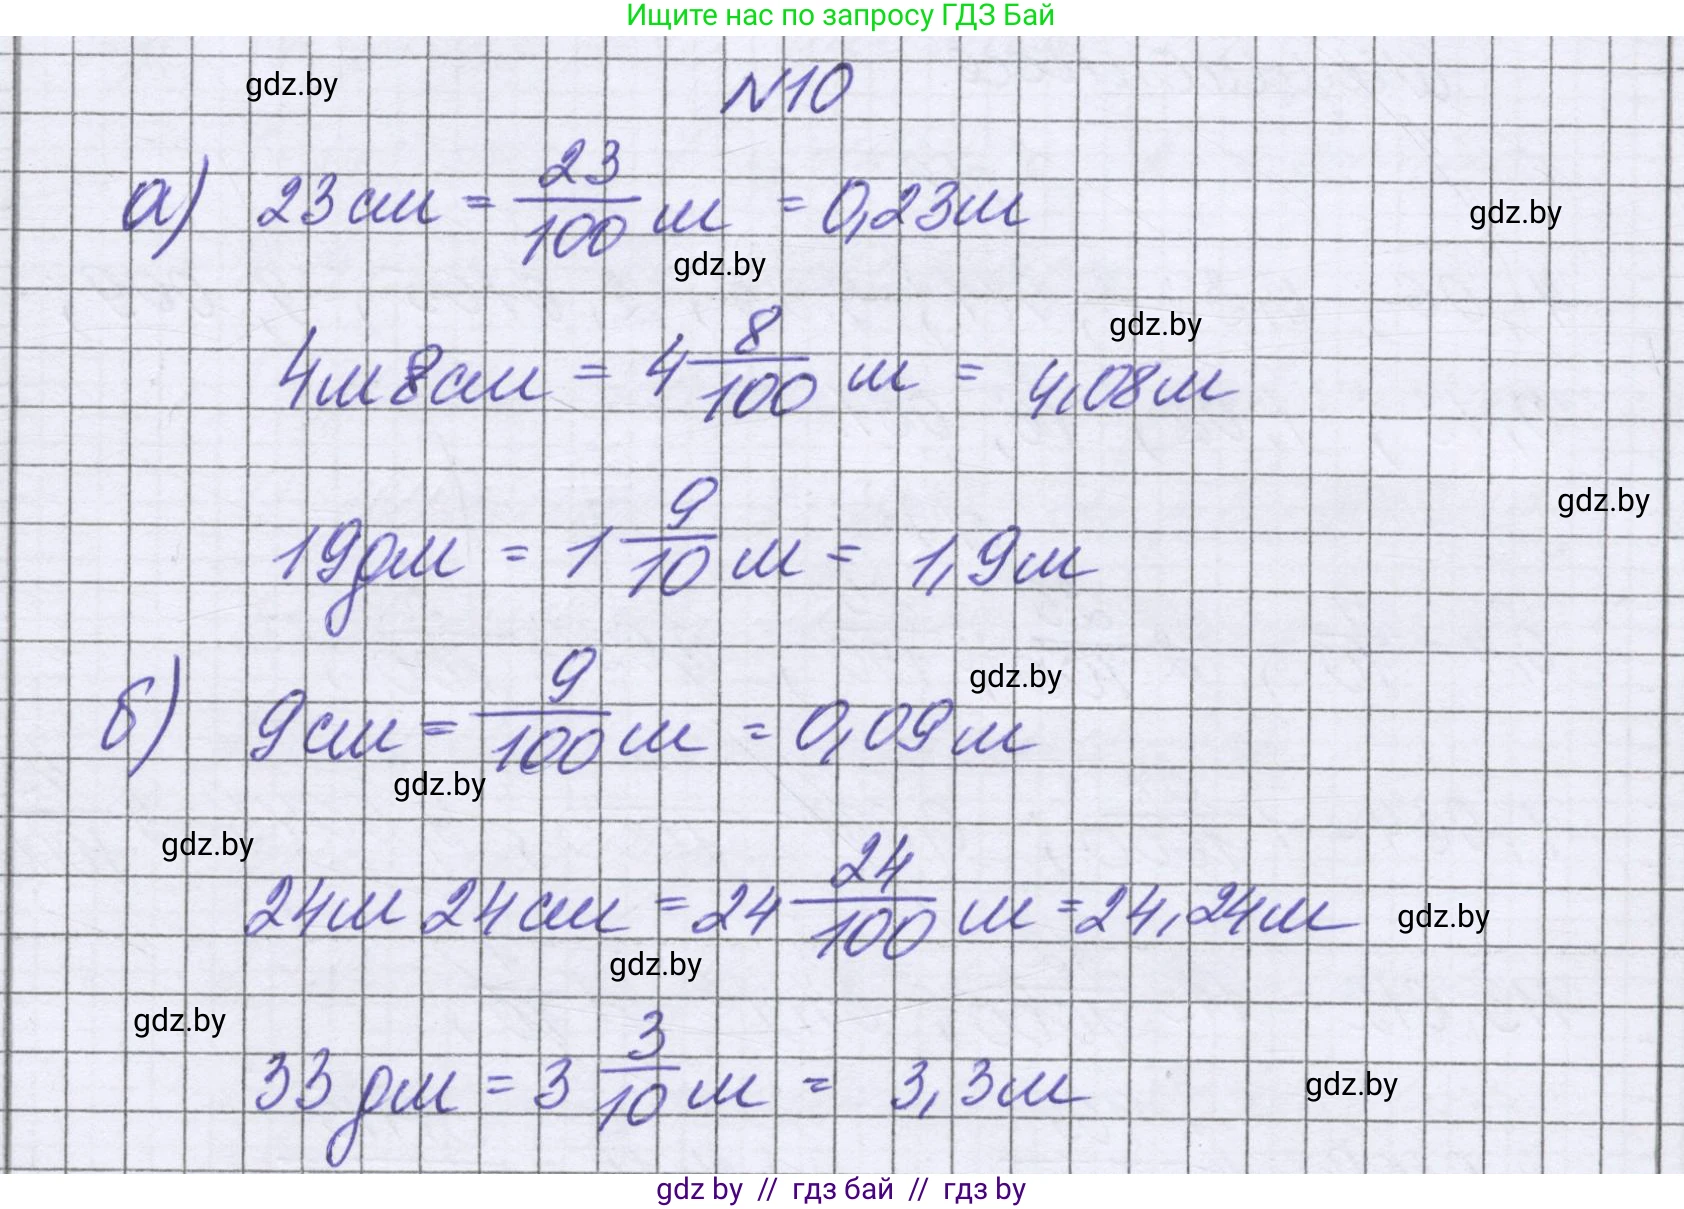 Ищите нас по запросу ГДЗ Бай
gdz.by
N10
а) 23 см = 23/100 м = 0,23м
gdz.by
gdz.by
gdz.by
4м 8см = 4 8/100 м = 4,08м
gdz.by
19дм = 1 9/10 м = 1,9м
gdz.by
б) 9см = 9/100 м = 0,09м
gdz.by
gdz.by
24м 24см = 24 24/100 м = 24,24м
gdz.by
gdz.by
gdz.by
33 дм = 3 3/10 м = 3,3м
gdz.by
gdz by // гдз бай // гдз by